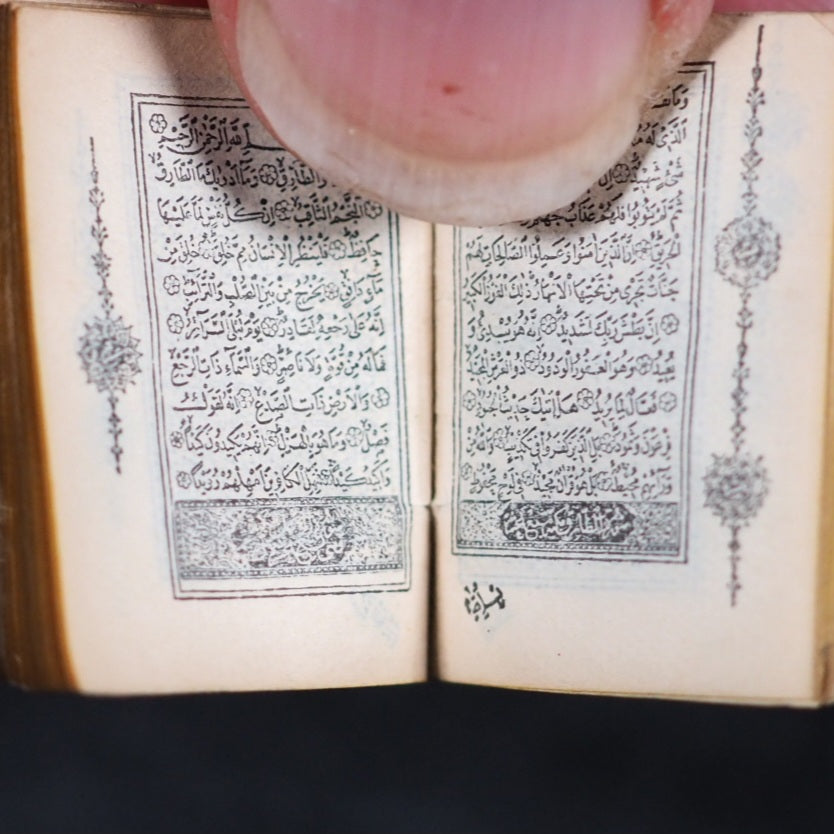 وَمَا نَقَ
الَّذِي لَهُ مُ
شَيْءٍ شَهِيدٌ إِنَّ
ثُمَّ لَمْ يَتُوبُوا فَلَهُمْ عَذَابُ جَهَنَّمَ
الْحَرِيقِ إِنَّ الَّذِينَ اٰمَنُوا وَعَمِلُوا الصَّالِحَاتِ لَهُمْ
جَنَّاتٌ تَجْرِي مِنْ تَحْتِهَا الْاَنْهَارُ ذٰلِكَ الْفَوْزُ الْكَبِيرُ
إِنَّ بَطْشَ رَبِّكَ لَشَدِيدٌ إِنَّهُ هُوَ يُبْدِئُ وَ
يُعِيدُ وَهُوَ الْغَفُورُ الْوَدُودُ ذُو الْعَرْشِ الْمَجِيدُ
فَعَّالٌ لِمَا يُرِيدُ هَلْ اَتٰيكَ حَدِيثُ الْجُنُودِ
فِرْعَوْنَ وَثَمُودَ بَلِ الَّذِينَ كَفَرُوا فِي تَكْذِيبٍ وَاللّٰهُ مِنْ
وَرَائِهِمْ مُحِيطٌ بَلْ هُوَ قُرْاٰنٌ مَجِيدٌ فِي لَوْحٍ مَحْفُوظٍ
سورة الطارق
اللّٰهِ الرَّحْمٰنِ الرَّحِيمِ
وَالطَّارِقِ وَمَا اَدْرٰيكَ مَا الطَّارِقُ
اَلنَّجْمُ الثَّاقِبُ اِنْ كُلُّ نَفْسٍ لَمَّا عَلَيْهَا
حَافِظٌ فَلْيَنْظُرِ الْاِنْسَانُ مِمَّ خُلِقَ خُلِقَ مِنْ
مَاءٍ دَافِقٍ يَخْرُجُ مِنْ بَيْنِ الصُّلْبِ وَالتَّرَائِبِ
اِنَّهُ عَلٰى رَجْعِهِ لَقَادِرٌ يَوْمَ تُبْلَى السَّرَائِرُ
فَمَا لَهُ مِنْ قُوَّةٍ وَلَا نَاصِرٍ وَالسَّمَاءِ ذَاتِ الرَّجْعِ
وَالْاَرْضِ ذَاتِ الصَّدْعِ اِنَّهُ لَقَوْلٌ
فَصْلٌ وَمَا هُوَ بِالْهَزْلِ اِنَّهُمْ يَكِيدُونَ كَيْدًا
وَاَكِيدُ كَيْدًا فَمَهِّلِ الْكَافِرِينَ اَمْهِلْهُمْ رُوَيْدًا